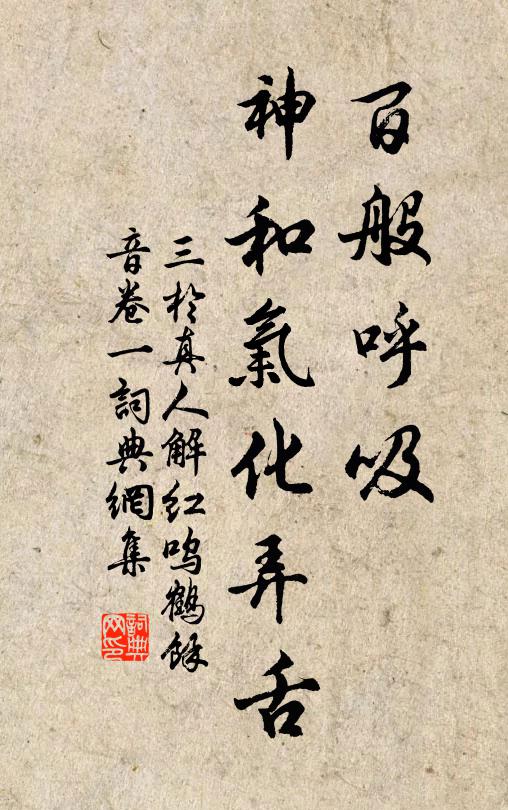 百般呼吸
神和氣化弄舌
三於真人解红鸣鶴餘
音卷一詞典網集
詞典网印